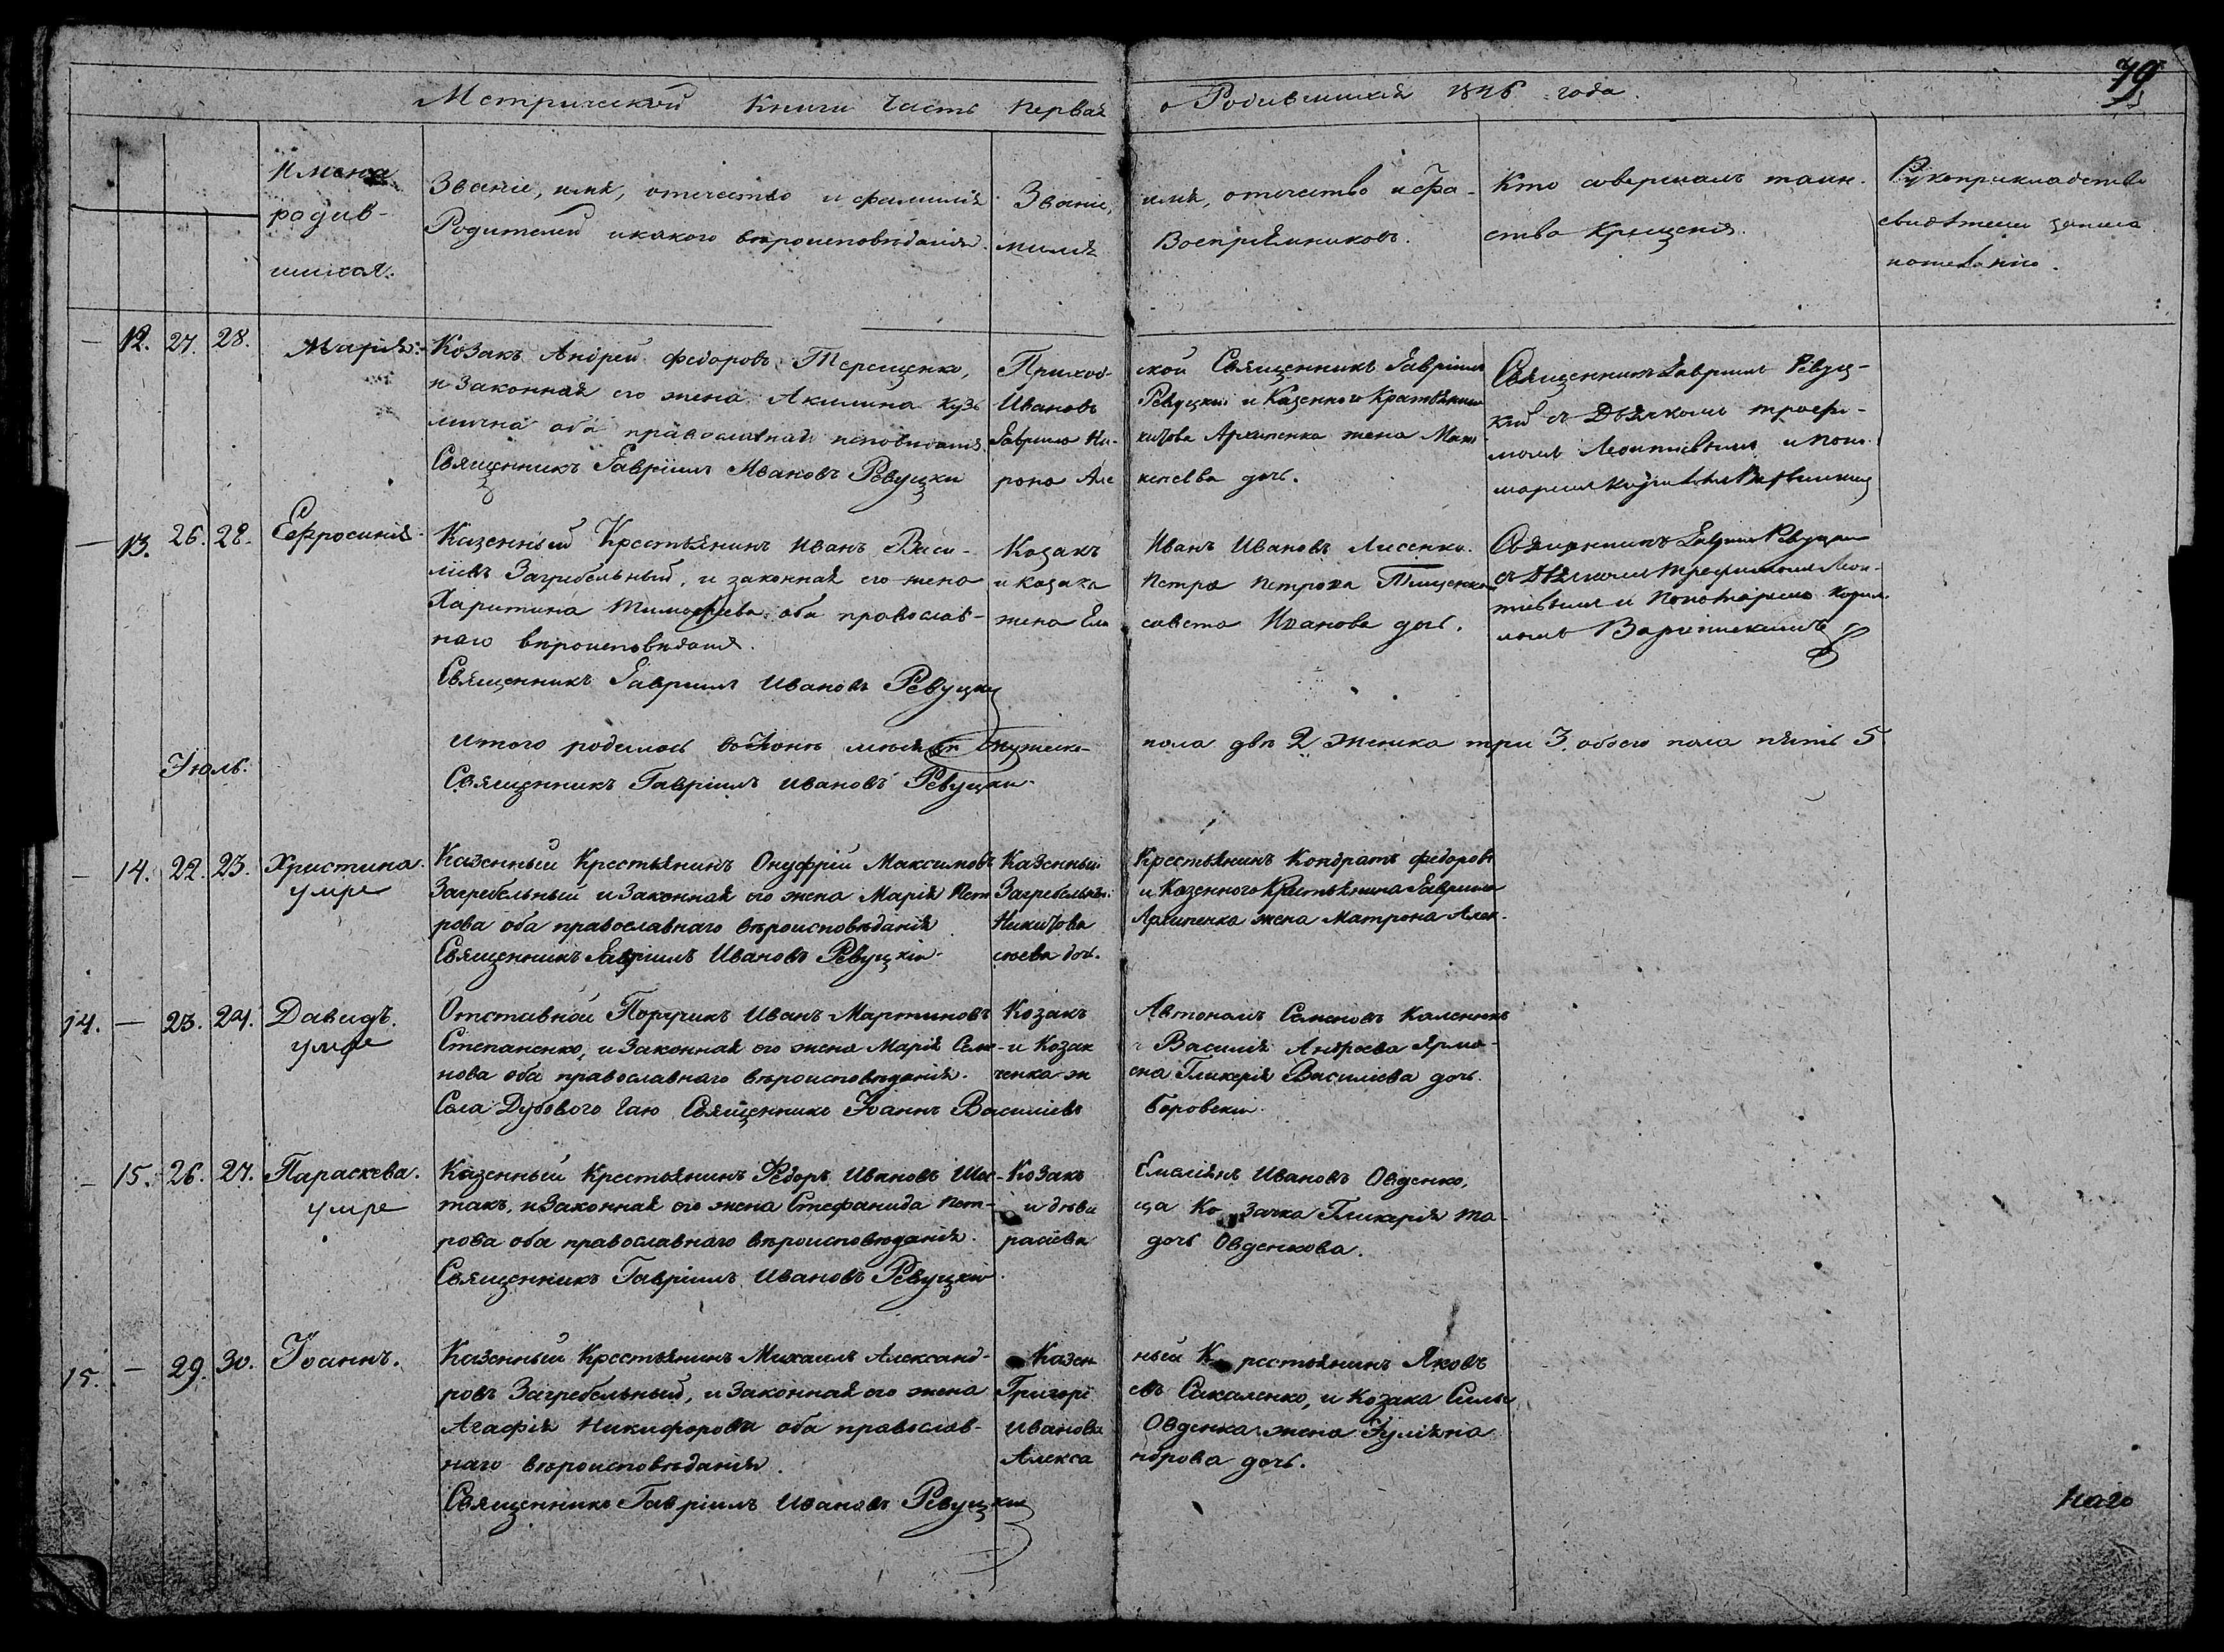 79
Метрической Книги Часть Первая о Родившихся 1846 года
Имена
родив-
шихся.
Званіе, имя, отечество и фамилія
Родителей и какого вѣроисповѣданія.
Званіе, имя, отечество и Фа-
милія Воспріемниковъ.
Кто совершалъ таин-
ство Крещенія.
Рукоприкладство
свидѣтелей записи
по желанію.
— 12. 27. 28. Марія.
Козакъ Андрей Федоровъ Терещенко,
и Законная его жена Акилина Кузь
мична оба православнаго исповѣданія
Священникъ Гавріилъ Ивановъ Ревуцкій
Приход- ской Священникъ Гавріилъ
Ивановъ Ревуцкій и Казенного Крестьянина
Гаврила Ни- китова Архипенка жена Мат
рона Але ксѣева дочь.
Священникъ Гавріилъ Ревуц-
кій съ Дьячкомъ Трофи-
момъ Леонтіевымъ и поно-
маремъ
— 13. 26. 28. Ефросинія.
Казенный Крестьянинъ Иванъ Васи-
ліевъ Загребельный, и законная его жена
Харитина Тимофѣева оба православ-
наго вѣроисповѣданія.
Священникъ Гавріилъ Ивановъ Ревуцкій
Козакъ Иванъ Ивановъ Лисенко.
и козака Петра Петрова Тищенка
жена Ели савета Иванова дочь.
Священникъ Гавріилъ Ревуцкій
съ Дьячкомъ Трофимомъ Леон-
тіевымъ и Пономаремъ Корни-
Итого родилось во Іюнѣ мѣсяцѣ мужеска пола два 2 Женска три 3. обоего пола пять 5
Іюль.
Священникъ Гавріилъ Ивановъ Ревуцкій
— 14. 22. 23. Христина.
умре
Казенный Крестьянинъ Онуфрій Максимовъ
Загребельный и Законная его жена Марія Пет
рова оба православнаго вѣроисповѣданія
Священникъ Гавріилъ Ивановъ Ревуцкій
Казенный Крестьянинъ Кондратъ Федоровъ
Загребельный и Казенного Крестьянина Гавриила
Никитова Архипенка жена Матрона Алек-
сѣева доч.
14. — 23. 24. Давидъ.
умре
Отставной Поручикъ Иванъ Мартиновъ
Степаненко, и Законная его жена Марія Семе-
нова оба православнаго вѣроисповѣданія.
Села Дубового Гаю Священникъ Іоаннъ Василіевъ Боровскій.
Козакъ Автономъ Семеновъ Каленикъ
и Козак а Василія Андреева Ярмо-
ченка ж ена Гликерія Василіева дочь.
— 15. 26. 27. Параскева.
умре
Казенный Крестьянинъ Федоръ Ивановъ Шос-
такъ, и Законная его жена Стефанида Пет-
рова оба православнаго вѣроисповѣданія.
Священникъ Гавріилъ Ивановъ Ревуцкій
Козакъ Емеліянъ Ивановъ Овденко,
и дѣви ца Ко зачка Гликерія Та-
расіева дочь Овденкова.
15. — 29. 30. Іоаннъ.
Казенный Крестьянинъ Михаилъ Александ-
ровъ Загребельный, и Законная его жена
Агафія Никифорова оба православ-
наго вѣроисповѣданія.
Священникъ Гавріилъ Ивановъ Ревуцкій
Казен ный К рестьянинъ Яковъ
Григорі евъ Сакаленко, и Козака Силы
Иванова Овденка жена Іуліяна
Алекса ндрова дочь.